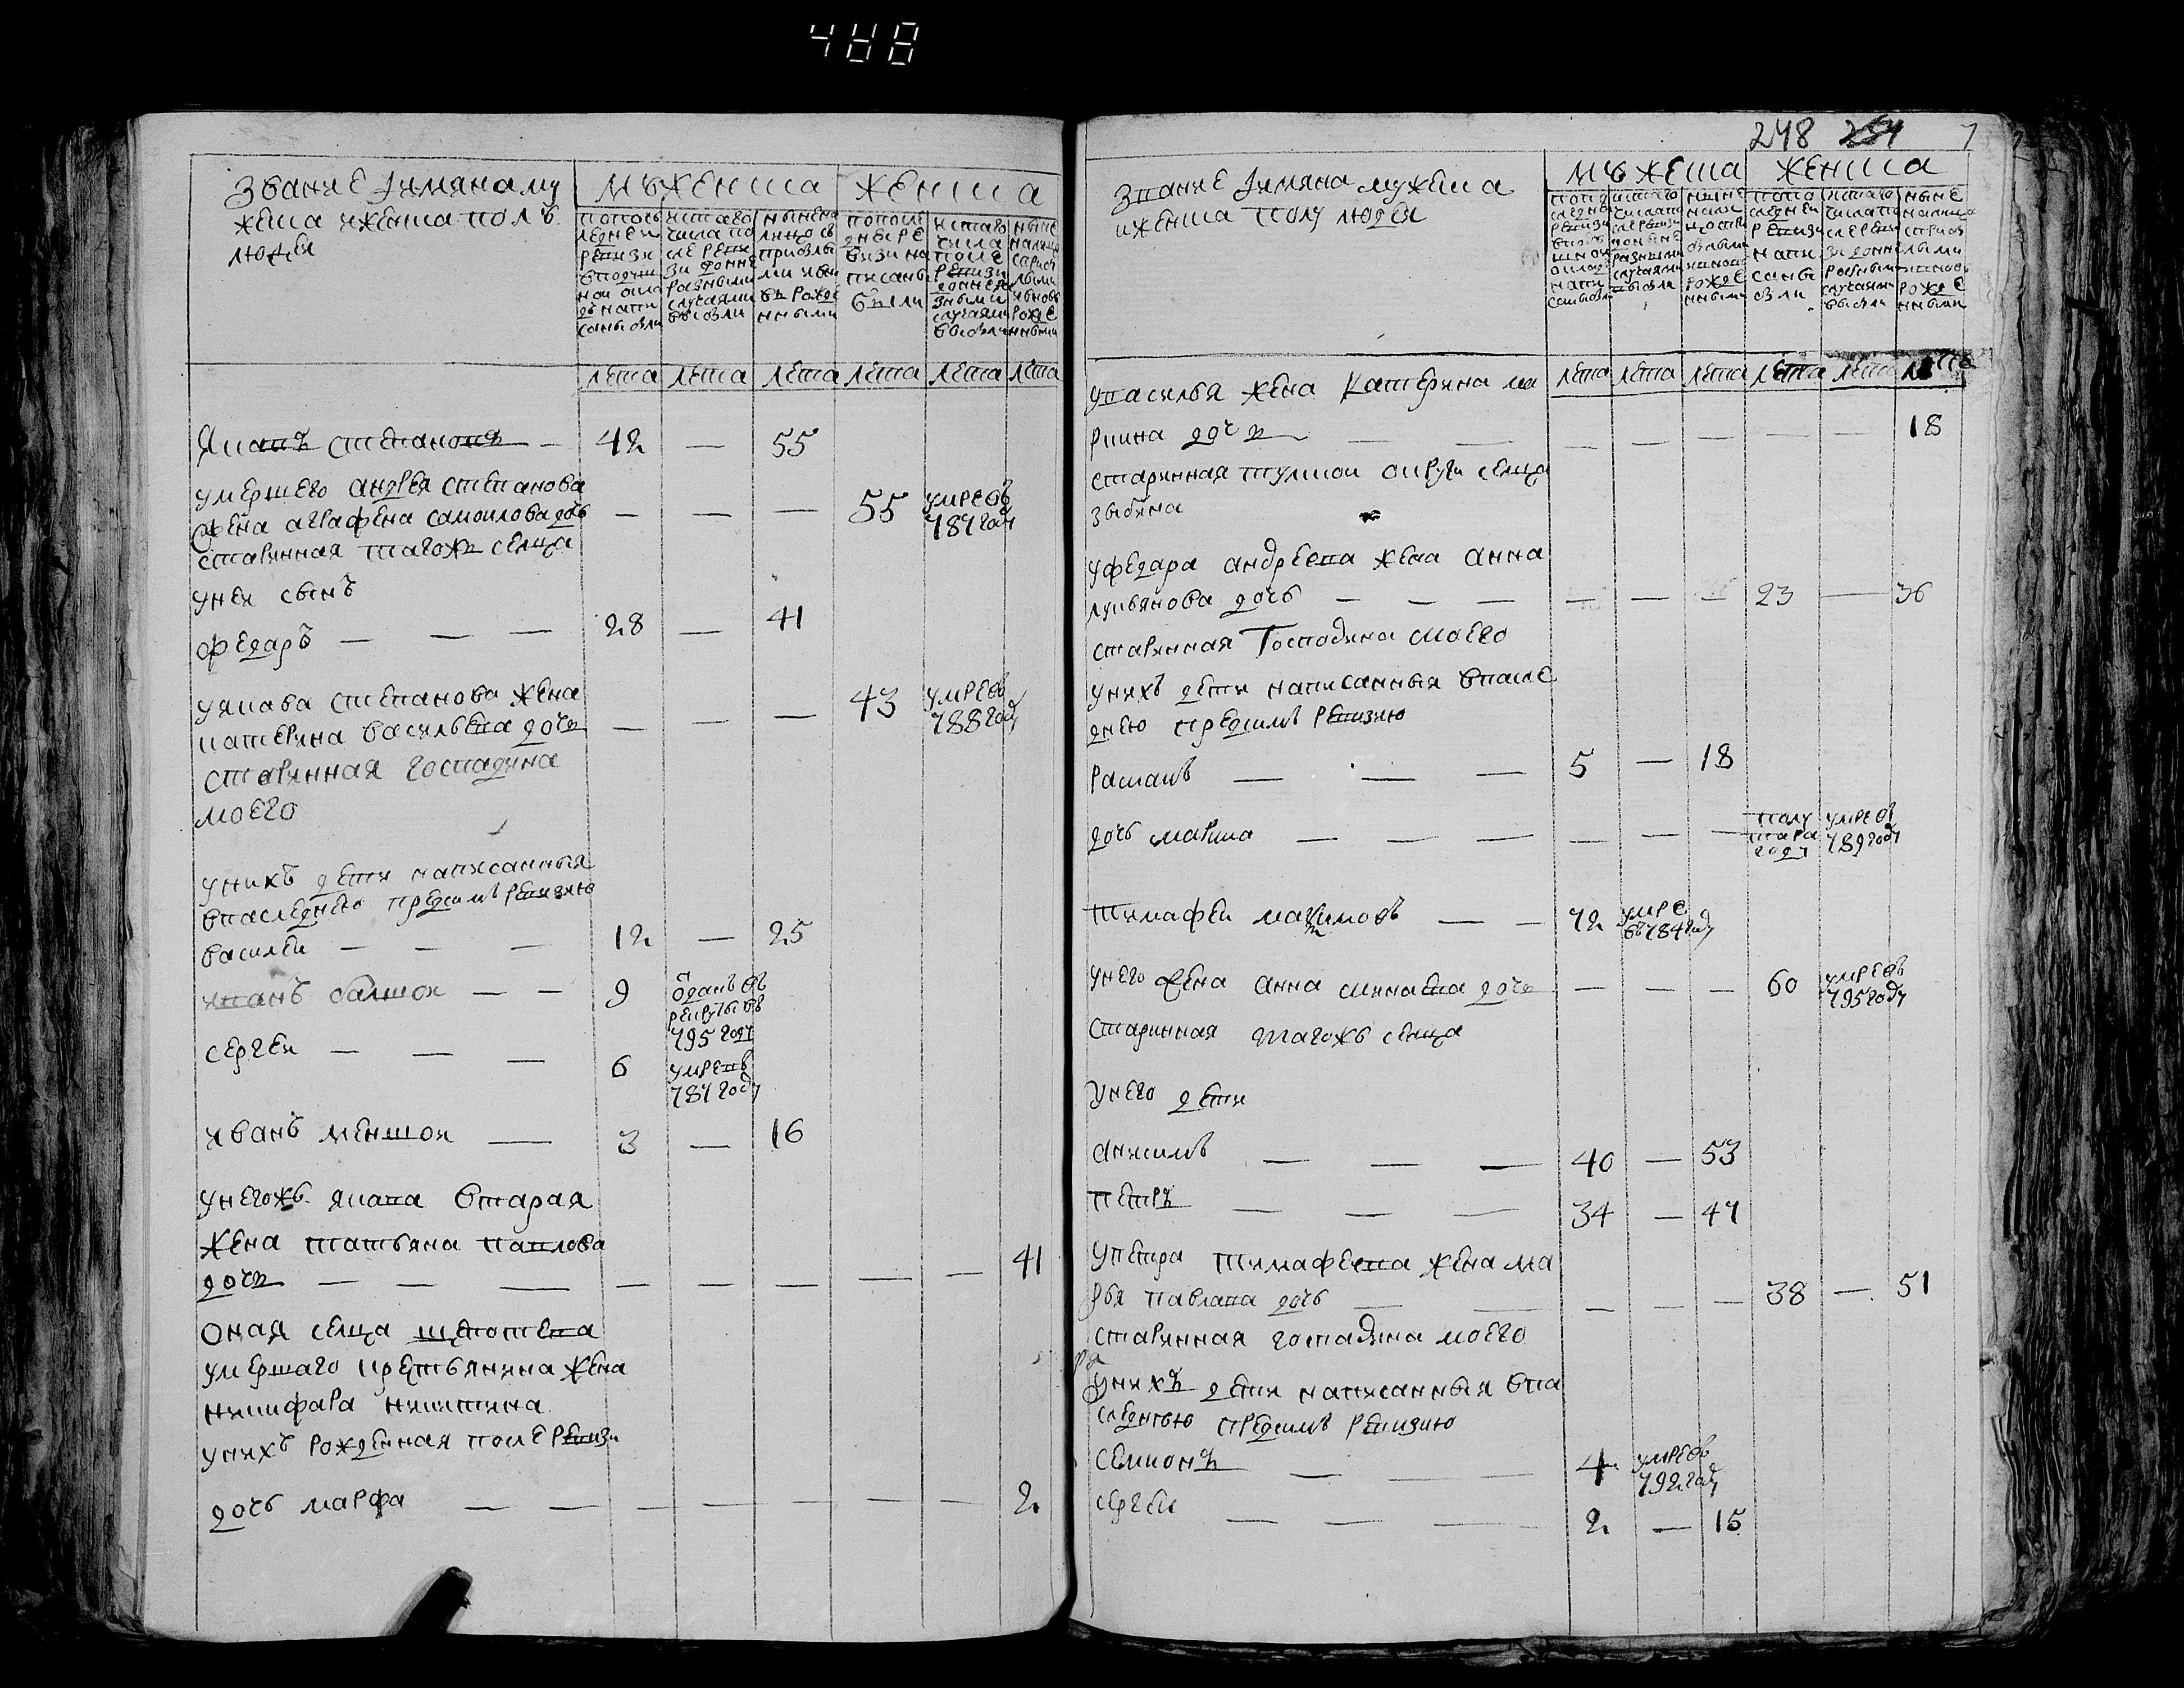 488
Звание Iимяна му
жеска иженска полъ
людей
мужеска
женска
попось
ледней
ревизи
вподуш
ной окла
дъ напи
саны были
истаго
числа по
сле реви
зи донне
разными
случаями
выбыли
ныне на
лицо съ
прибылы
ми ивн
вь рожде
нными
попосле
дне ре
визи на
писаны
были
истаго
числа
после
ревизи
донне ра
зными
случаями
выбыли
ныне
на лицо
спри
лыми
ивновь
рожде
нными
лета лета лета лета лета лета
Яковъ степановъ — 42 — 55
умершего андрея степанова
жена аграфена самоилова дочь — — — 55 умре въ 787 году
старинная тагожъ селца
унея сынъ
федаръ — — — 28 — 41
уякава степанова жена
катерина васильева дочь — — — 43 умре въ 788 году
старинная господина
моего
унихъ дети написанныя
впаследнею предсимъ ревизию
василей — — — 12 — 25
иванъ болшой — — 9 отданъ въ рекруты въ 795 году
сергей — — — 6 умре въ 787 году
иванъ меншой — 3 — 16
унегожъ якава вторая
жена татьяна павлова
дочь — — — — — — — — 41
оная селца щепотева
умершаго крестьянина жена
никифара никитина
унихъ рожденная после ревизи
дочь марфа — — — — — — — 2
248 254 7
Звание Iимяна мужеска
иженска полу людей
мужеска
женска
попо
следне
ревизи
вподу
шной
оклад
напи
саны были
истаго
числа по
сле ревизи
доныне
разными
случаями
выбыли
ныне
на ли
цо съ при
былыми
ивново
рожде
нными
попо
следней
ревизи
напи
саны
были
истаго
числа по
сле реви
зи донне
разными
случаями
выбыли
ныне
налицо
сприбы
лыми
ивновь
рожде
нными
лета лета лета лета лета лета
увасилья жена катерина ма
ркина дочь — — — — — — — 18
старинная тулской округи селца
зыбина
уфедара андреева жена анна
лукьянова дочь — — — — — — 23 — 36
старинная Господина моего
унихъ дети написанныя впасле
днею предсимъ ревизию
раманъ — — — 5 — 18
дочь марина — — — — — — полутара году умре въ 789 году
тимафей макимовъ — — 72 умре въ 784 году
унего жена анна минаева дочь — — — 60 умре въ 795 году
старинная тагожъ селца
унего дети
анисимъ — — — 40 — 53
петръ — — — 34 — 47
упетра тимафеева жена ма
рья павлова дочь — — — — — 38 — 51
старинная господина моего
унихъ дети написанныя впа
следнею предсимъ ревизию
семионъ — — — 4 умре въ 792 году
сергей — — — 2 — 15